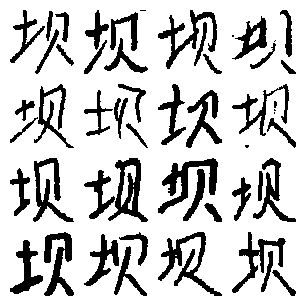 坝坝坝坝
坝坝坝坝
坝坝坝坝
坝坝坝坝